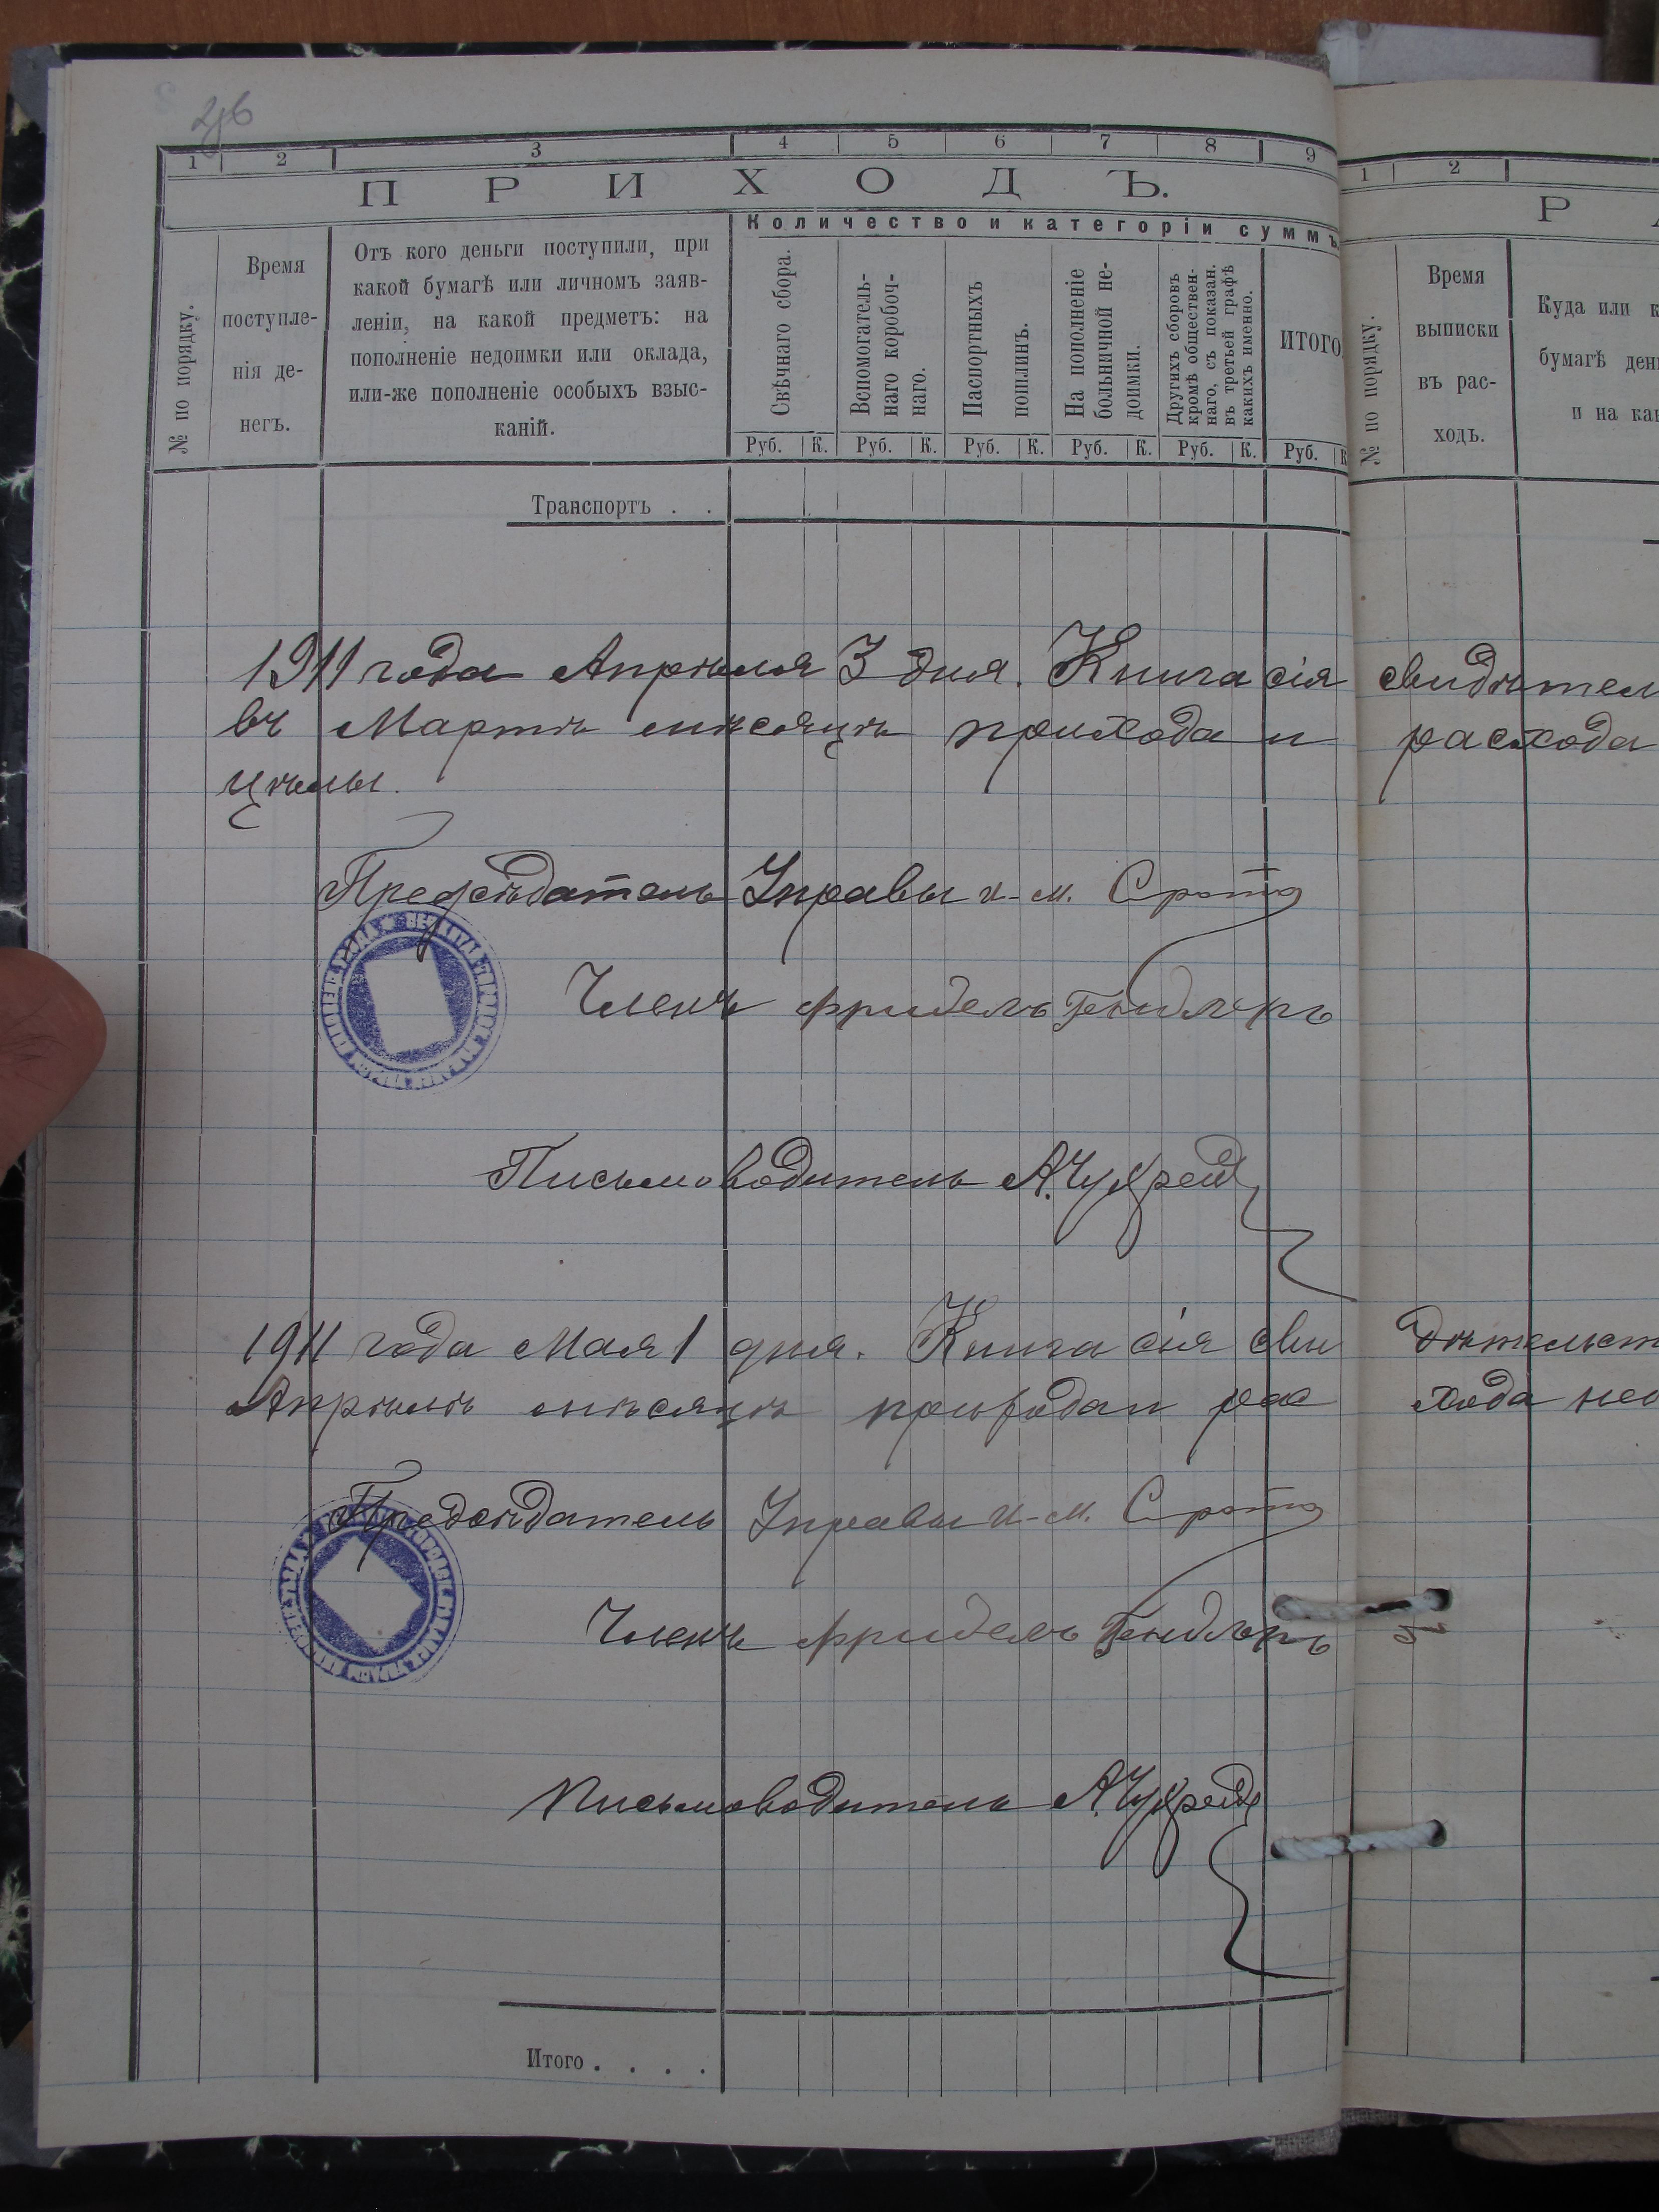 2об
1 2 3 4 5 6 7 8 9
ПРИХОДЪ.
№ по порядку.
Время
поступле-
нія де-
негъ.
Отъ кого деньги поступили, при
какой бумагѣ или личномъ заяв-
леніи, на какой предметъ: на
пополненіе недоимки или оклада,
или-же пополненіе особыхъ взыс-
каній.
Количество и категоріи суммъ
Свѣчнаго сбора.
Вспомогатель-
наго коробоч-
наго.
Паспортныхъ
пошлинъ.
На пополненіе
больничной не-
доимки.
Другихъ сборовъ
кромѣ обществен-
наго, съ показан.
въ третьей графѣ
какихъ именно.
ИТОГО
Руб. К. Руб. К. Руб. К. Руб. К. Руб. К. Руб. К
Транспортъ . .
1911 года Апрѣля 3 дня. Книга сія свидѣтел
въ Мартѣ мѣсяцѣ прихода и расхода
цѣлы.
Предсѣдатель Управы и-м.
Членъ Фридель
Письмоводитель
1911 года Мая 1 дня. Книга сія сви дѣтельст
Апрѣлѣ мѣсяцѣ прихода и рас хода
Предсѣдатель Управы и-м.
Членъ Фридель
Письмоводитель
Итого . . . .
1 2
Р
№ по порядку.
Время
выписки
въ рас-
ходъ.
Куда или к
бумагѣ ден
и на ка